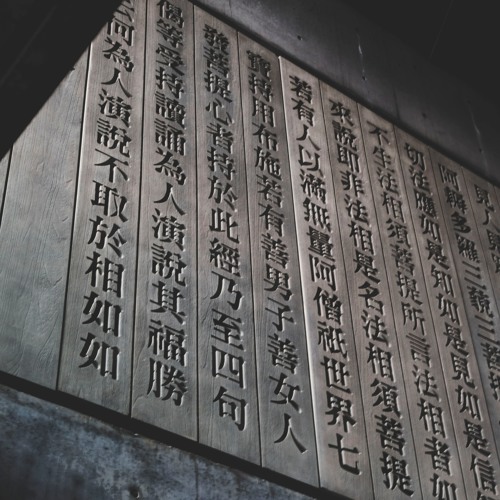 見人
阿耨多羅三藐三菩提
切法應如是知如是見如是信
不生法相須菩提所言法相者如
來說即非法相是名法相須菩提
若有人以滿無量阿僧祇世界七
寶持用布施若有善男子善女人
發菩提心者持於此經乃至四句
偈等受持讀誦為人演說其福勝
云何為人演說不取於相如如